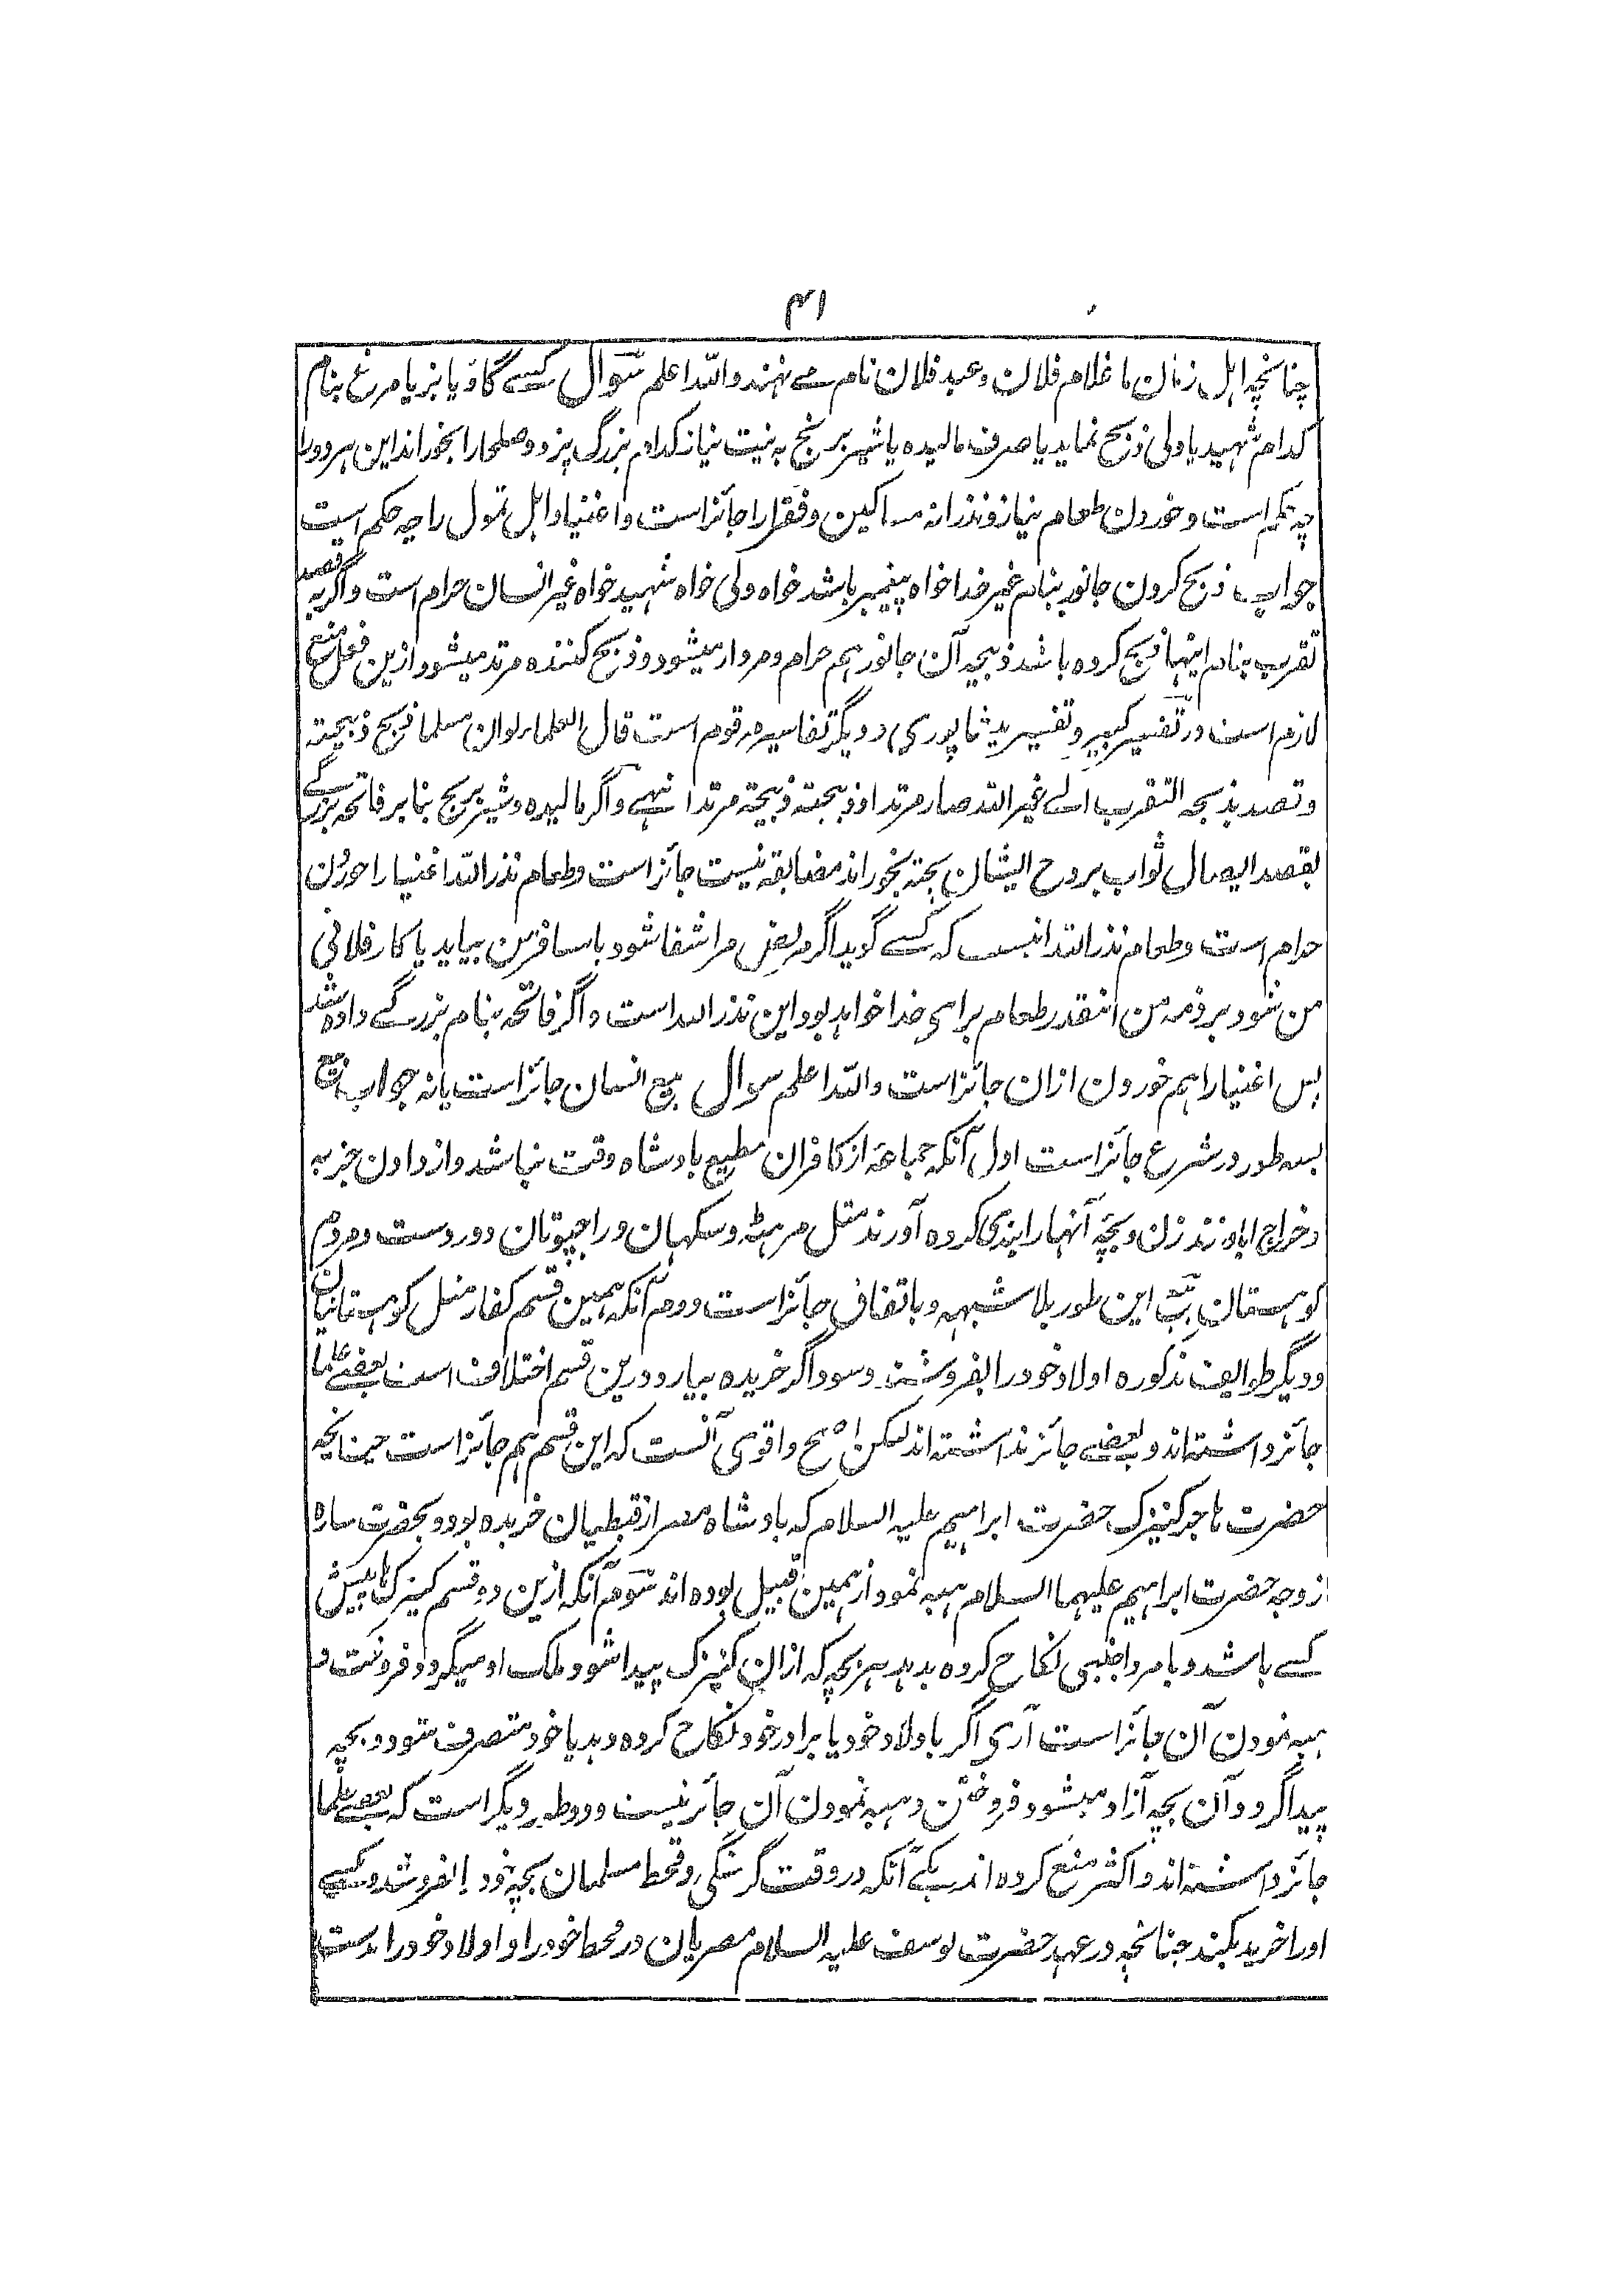 ۴۱
چنانچه اہل زمان ما غلام فلان وعبد فلان نام مے نہند واللہ اعلم سوال کسے گاؤ یا بز یا مرغ بنام
کدام شہید یا ولی ذبح نماید یا صرف مالیدہ یا شیر برنج بہ نیت نیاز کدام بزرگ پزد وصلحا را بخوراند این ہر دو را
چہ حکم است وخوردن طعام نیاز ونذرانہ مساکین وفقرا را جائز است واغنیا واہل تمول را چہ حکم است
جواب ذبح کردن جانور بنام غیر خدا خواہ پیغمبر باشد خواہ ولی خواہ شہید خواہ غیر انسان حرام است واگر بہ قصد
تقرب بنام اینہا ذبح کردہ باشد ذبیحہ آن جانور ہم حرام ومردار میشود وذبح کنندہ مرتد میشود ازین فعل منع
لازم است در تفسیر کبیر وتفسیر نیشاپوری ودیگر تفاسیر مرقوم است قال العلماء لو ان مسلما ذبح ذبیحتہ
وقصد بذبحہ التقرب الے غیر اللہ صار مرتدا وذبیحتہ ذبیحۃ مرتد انتہے واگر مالیدہ وشیر برنج بنا بر فاتحہ بزرگے
بقصد ایصال ثواب بروح ایشان پختہ بخوراند مضایقہ نیست جائز است وطعام نذر اللہ اغنیا را خوردن
حرام است وطعام نذر اللہ اینست کہ کسے گوید اگر مریض مرا شفا شود یا مسافر من بیاید یا کار فلانی
من شود بر ذمہ من اینقدر طعام برای خدا خواہد بود این نذر اللہ است واگر فاتحہ بنام بزرگے دادہ شد
پس اغنیا را ہم خوردن ازان جائز است واللہ اعلم سوال بیع انسان جائز است یا نہ جواب بیع
بسہ طور در شرع جائز است اول آنکہ جماعۃ از کافران مطیع بادشاہ وقت نباشد واز دادن جزیہ
وخراج ابا ورزند زن وبچہ آنہا را بندی کردہ آورند مثل مرہٹہ وسکہان وراجپوتان دور دست ومردم
کوہستان تبت این طور بلا شبہہ وباتفاق جائز است دوم آنکہ ہمین قسم کفار مثل کوہستانیان
ودیگر طوایف مذکورہ اولاد خود را بفروشند وسوداگر خریدہ بیارد درین قسم اختلاف است بعضے علما
جائز داشتہ اند وبعضے جائز نداشتہ اند لیکن اصح واقوی آنست کہ این قسم ہم جائز است چنانچہ
حضرت ہاجر کنیزک حضرت ابراہیم علیہ السلام کہ بادشاہ مصر از قبطیان خریدہ بود وبحضرت سارہ
زوجہ حضرت ابراہیم علیہما السلام ہبہ نمود از ہمین قبیل بودہ اند سوم آنکہ ازین دو قسم کنیزک پیش
کسے باشد وبا مرد اجنبی نکاح کردہ بدہد ہر بچہ کہ ازان کنیزک پیدا شود ملک او میگردد وفروخت و
ہبہ نمودن آن جائز است آری اگر با ولاد خود یا برادر خود نکاح کردہ دہد یا خود متصرف شود وبچہ
پیدا گردد آن بچہ آزاد میشود فروختن وہبہ نمودن آن جائز نیست ودو طور دیگر است کہ بعضے علما
جائز داشتہ اند واکثر منع کردہ اند یکے آنکہ در وقت گرسنگی وقحط مسلمان بچہ خود را بفروشد وکسے
او را خرید بکند چنانچہ در عہد حضرت یوسف علیہ السلام مصریان در قحط خود را واولاد خود را بدست